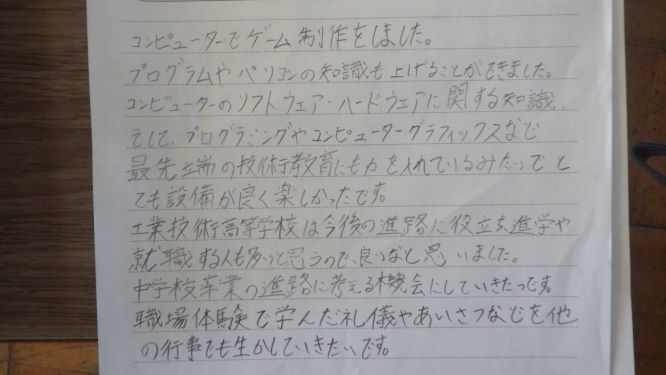 コンピューターでゲーム制作をしました。
プログラムやパソコンの知識も上げることができました。
コンピューターのソフトウェア・ハードウェアに関する知識、
そして、プログラミングやコンピューターグラフィックスなど
最先端の技術教育にも力を入れているみたいでと
ても設備が良く楽しかったです。
工業技術高等学校は今後の進路に役立ち、進学や
就職する人も多いと思うので、良いなと思いました。
中学校卒業の進路に考える機会にしていきたいです。
職場体験で学んだ礼儀やあいさつなどを他
の行事でも生かしていきたいです。